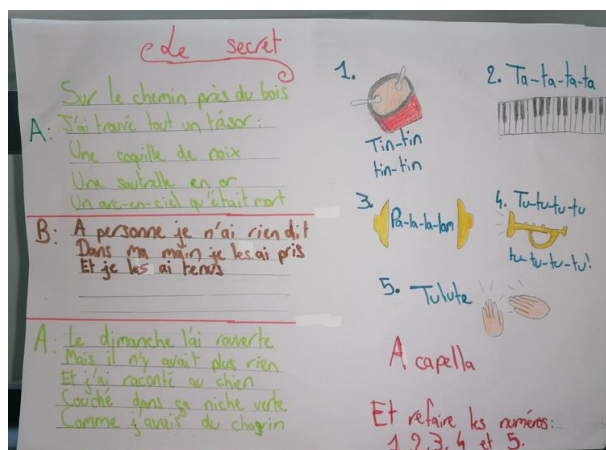 Le secret
A: Sur le chemin près du bois
J'ai trouvé tout un trésor:
Une coquille de noix
Une sautrelle en or
Un arc-en-ciel qu'était mort
B: A personne je n'ai rien dit
Dans ma main je les ai pris
Et je les ai tenus
A: Le dimanche l'ai rouverte
Mais il n'y avait plus rien
Et j'ai raconté au chien
Couché dans sa niche verte
Comme j'avais du chagrin
1.
Tin-tin
tin-tin
2. Ta-ta-ta-ta
3. Pa-la-la-lan
4. Tu-tu-tu-tu
tu-tu-tu-tu!
5. Tulute
A capella
Et refaire les numéros:
1, 2, 3, 4 et 5.